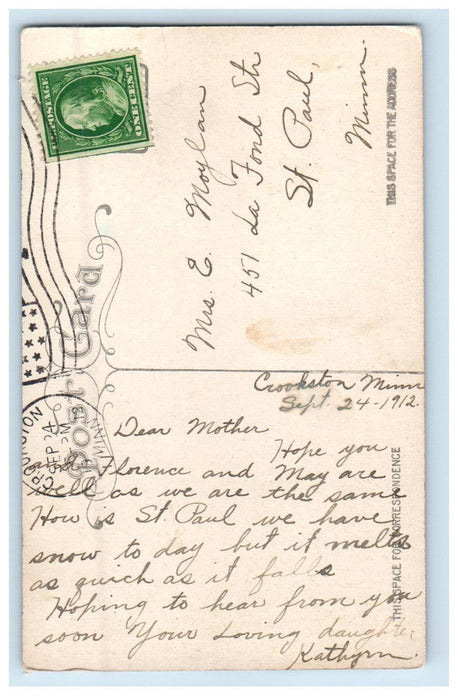 U.S. POSTAGE
ONE CENT
Mrs. E. Moylan
451 La Fond Str
St. Paul,
Minn.
THIS SPACE FOR THE ADDRESS
Post Card
CROOKSTON
SEP 24
MINN
Crookston Minn
Sept. 24-1912.
Dear Mother
Hope you
and Florence and May are
well as we are the same
How is St. Paul we have
snow to day but it melts
as quick as it falls
Hoping to hear from you
soon Your Loving daughter
Kathyrn.
THIS SPACE FOR CORRESPONDENCE